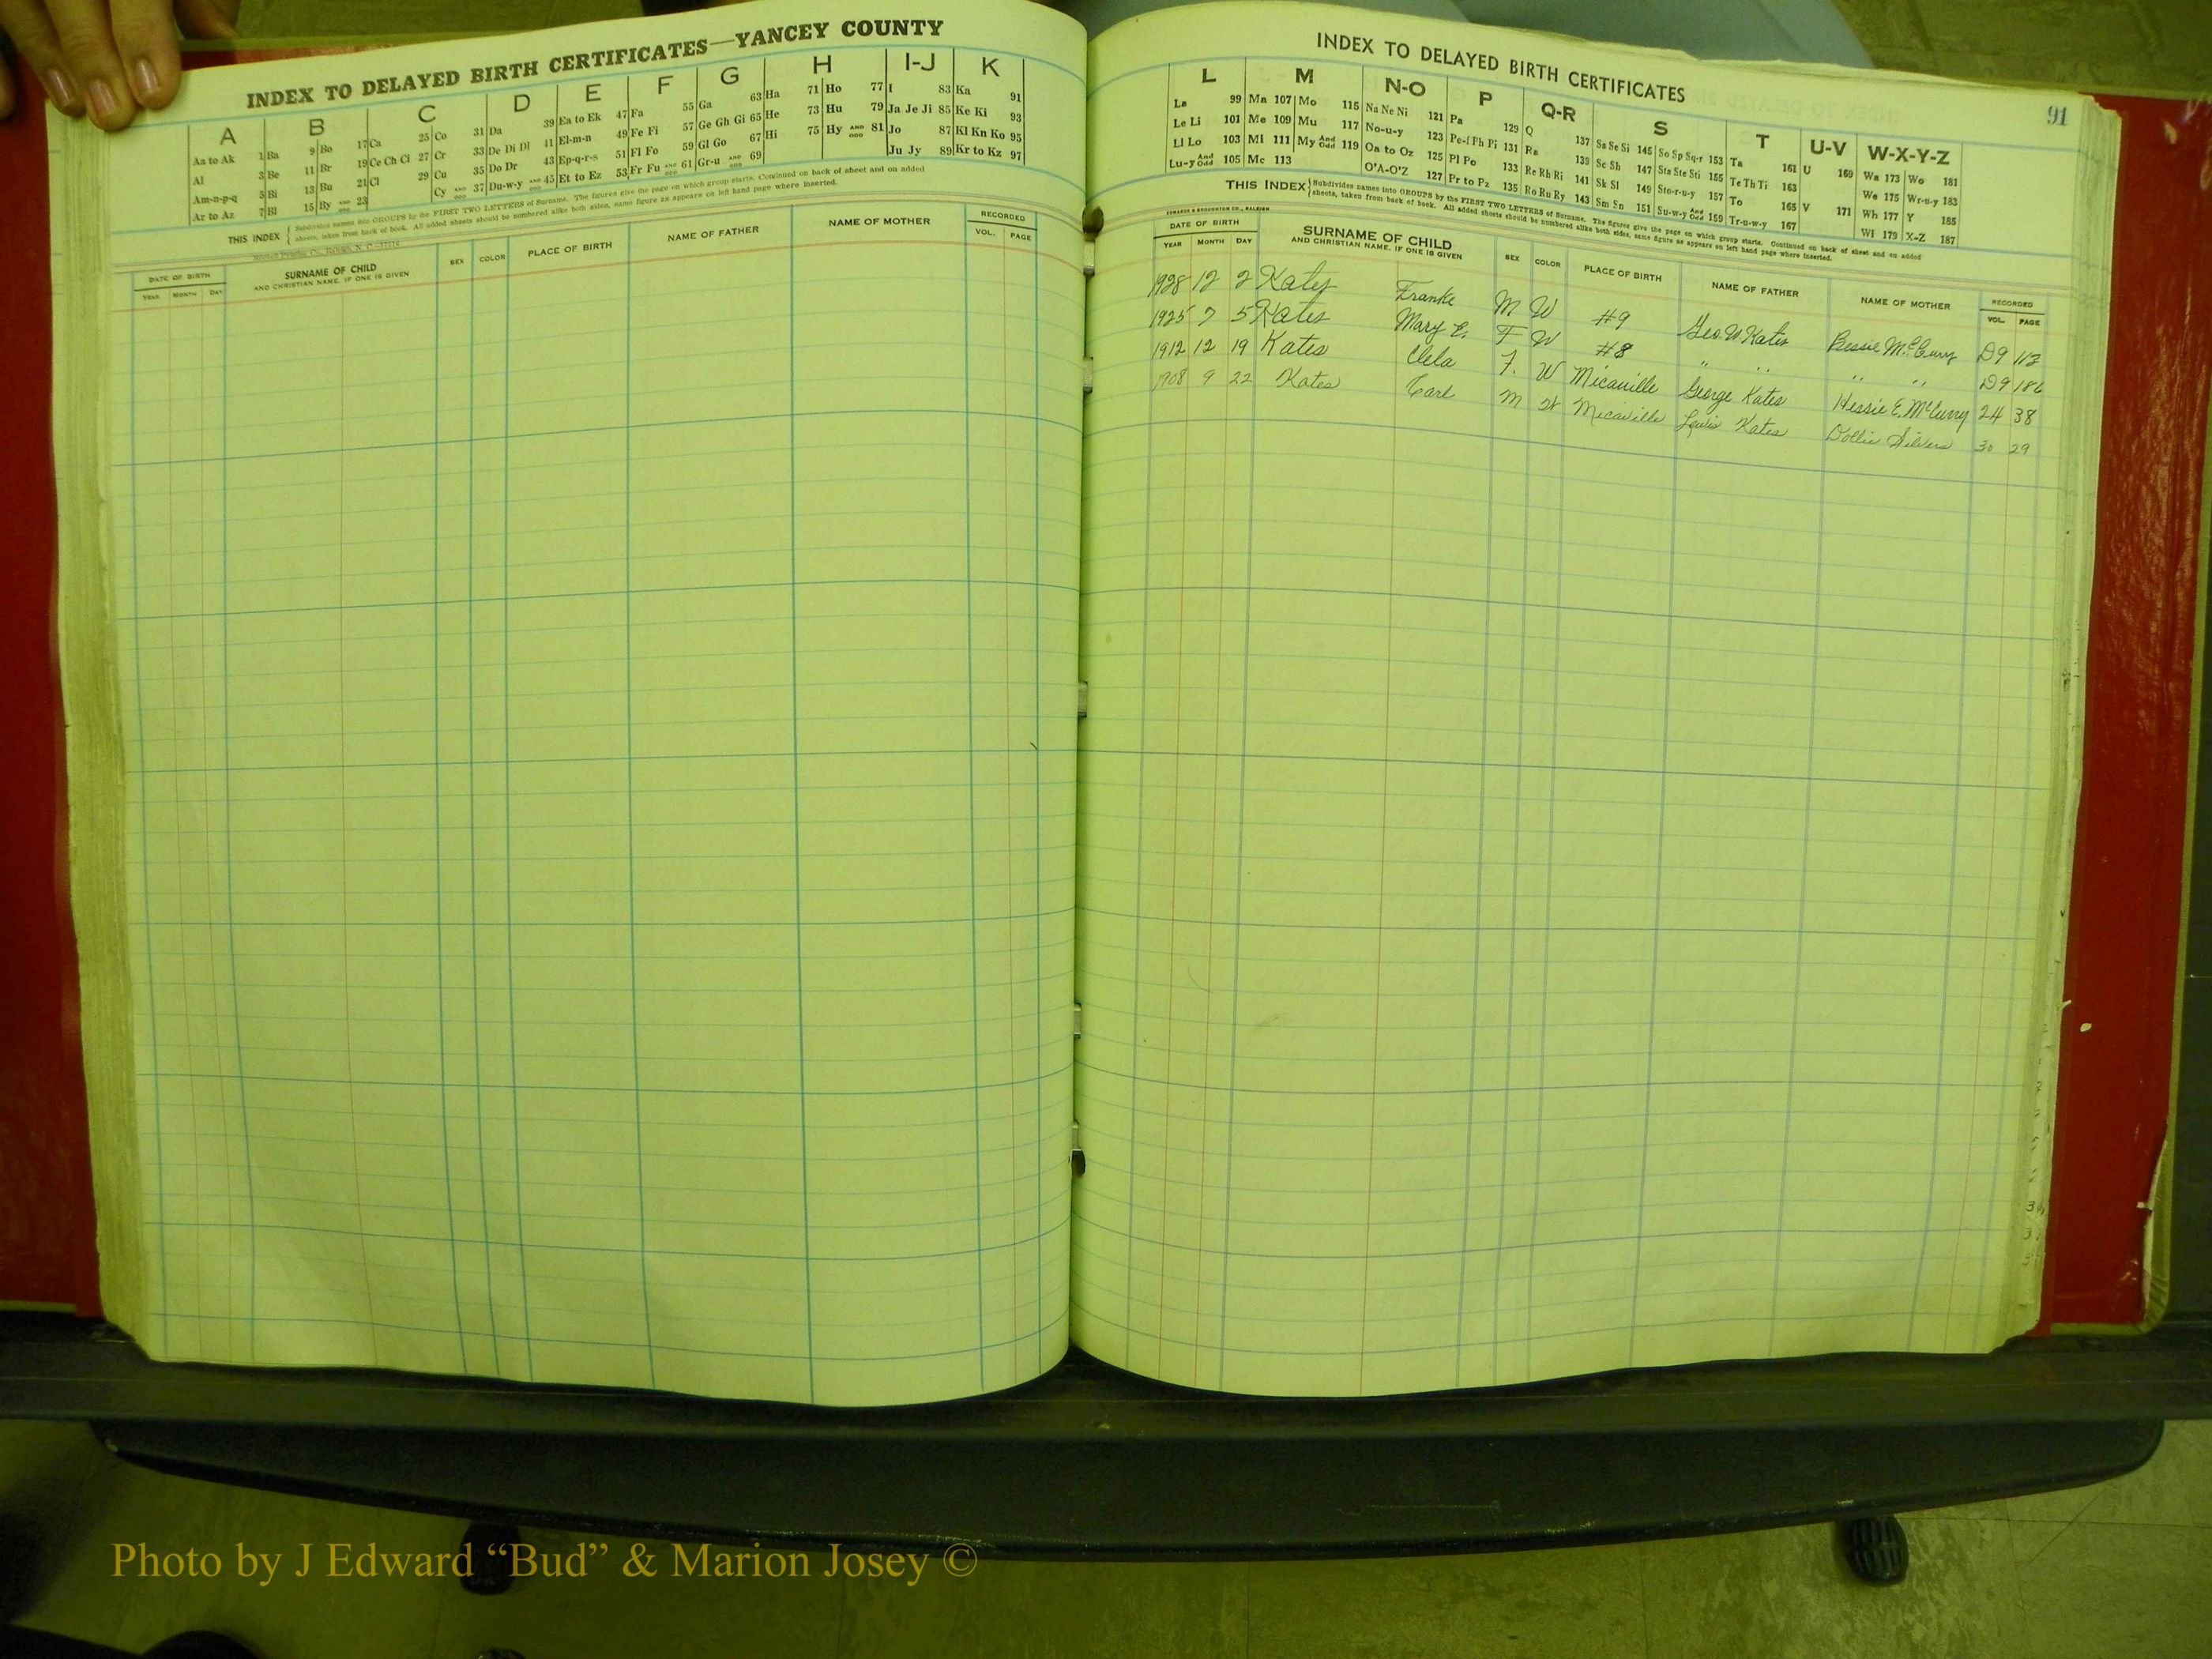 INDEX TO DELAYED BIRTH CERTIFICATES—YANCEY COUNTY
A B C D E F G H I-J K
Aa to Ak 1 Ba 9 Bo 17 Ca 25 Co 31 Da 39 Ea to Ek 47 Fa 55 Ga 63 Ha 71 Ho 77 I 83 Ka 91
Al 3 Be 11 Br 19 Ce Ch Ci 27 Cr 33 De Di Dl 41 El-m-n 49 Fe Fi 57 Ge Gh Gi 65 He 73 Hu 79 Ja Je Ji 85 Ke Ki 93
Am-n-p-q 5 Bi 13 Bu 21 Cl 29 Cu 35 Do Dr 43 Ep-q-r-s 51 Fl Fo 59 Gl Go 67 Hi 75 Hy AND ODD 81 Jo 87 Kl Kn Ko 95
Ar to Az 7 Bl 15 By AND ODD 23 Cy AND ODD 37 Du-w-y AND ODD 45 Et to Ez 53 Fr Fu AND ODD 61 Gr-u AND ODD 69 Ju Jy 89 Kr to Kz 97
THIS INDEX Subdivides names into GROUPS by the FIRST TWO LETTERS of Surname. The figures give the page on which group starts. Continued on back of sheet and on added
sheets, taken from back of book. All added sheets should be numbered alike both sides, same figure as appears on left hand page where inserted.
DATE OF BIRTH SURNAME OF CHILD SEX COLOR PLACE OF BIRTH NAME OF FATHER NAME OF MOTHER RECORDED
YEAR MONTH DAY AND CHRISTIAN NAME, IF ONE IS GIVEN VOL. PAGE
INDEX TO DELAYED BIRTH CERTIFICATES
91
L M N-O P Q-R S T U-V W-X-Y-Z
La 99 Ma 107 Mo 115 Na Ne Ni 121 Pa 129 Q 137 Sa Se Si 145 So Sp Sq-r 153 Ta 161 U 169 Wa 173 Wo 181
Le Li 101 Me 109 Mu 117 No-u-y 123 Pe-f Ph Pi 131 Ra 139 Sc Sh 147 Sta Ste Sti 155 Te Th Ti 163 We 175 Wr-u-y 183
Ll Lo 103 Mi 111 My And Odd 119 Oa to Oz 125 Pl Po 133 Re Rh Ri 141 Sk Sl 149 Sto-r-u-y 157 To 165 V 171 Wh 177 Y 185
Lu-y And Odd 105 Mc 113 O'A-O'Z 127 Pr to Pz 135 Ro Ru Ry 143 Sm Sn 151 Su-w-y And Odd 159 Tr-u-w-y 167 Wi 179 X-Z 187
THIS INDEX Subdivides names into GROUPS by the FIRST TWO LETTERS of Surname. The figures give the page on which group starts. Continued on back of sheet and on added
sheets, taken from back of book. All added sheets should be numbered alike both sides, same figure as appears on left hand page where inserted.
EDWARDS & BROUGHTON CO., RALEIGH
DATE OF BIRTH SURNAME OF CHILD SEX COLOR PLACE OF BIRTH NAME OF FATHER NAME OF MOTHER RECORDED
YEAR MONTH DAY AND CHRISTIAN NAME, IF ONE IS GIVEN VOL. PAGE
1928 12 2 Kates Franke M W #9 Geo. W. Kates Bessie McCurry D9 112
1925 7 5 Kates Mary E. F W #8 " " " " D9 186
1912 12 19 Kates Clela F. W Micaville George Kates Hessie E. McCurry 24 38
1908 9 22 Kates Carl M W Micaville Lewis Kates Dollie Silvers 30 29
Photo by J Edward “Bud” & Marion Josey ©